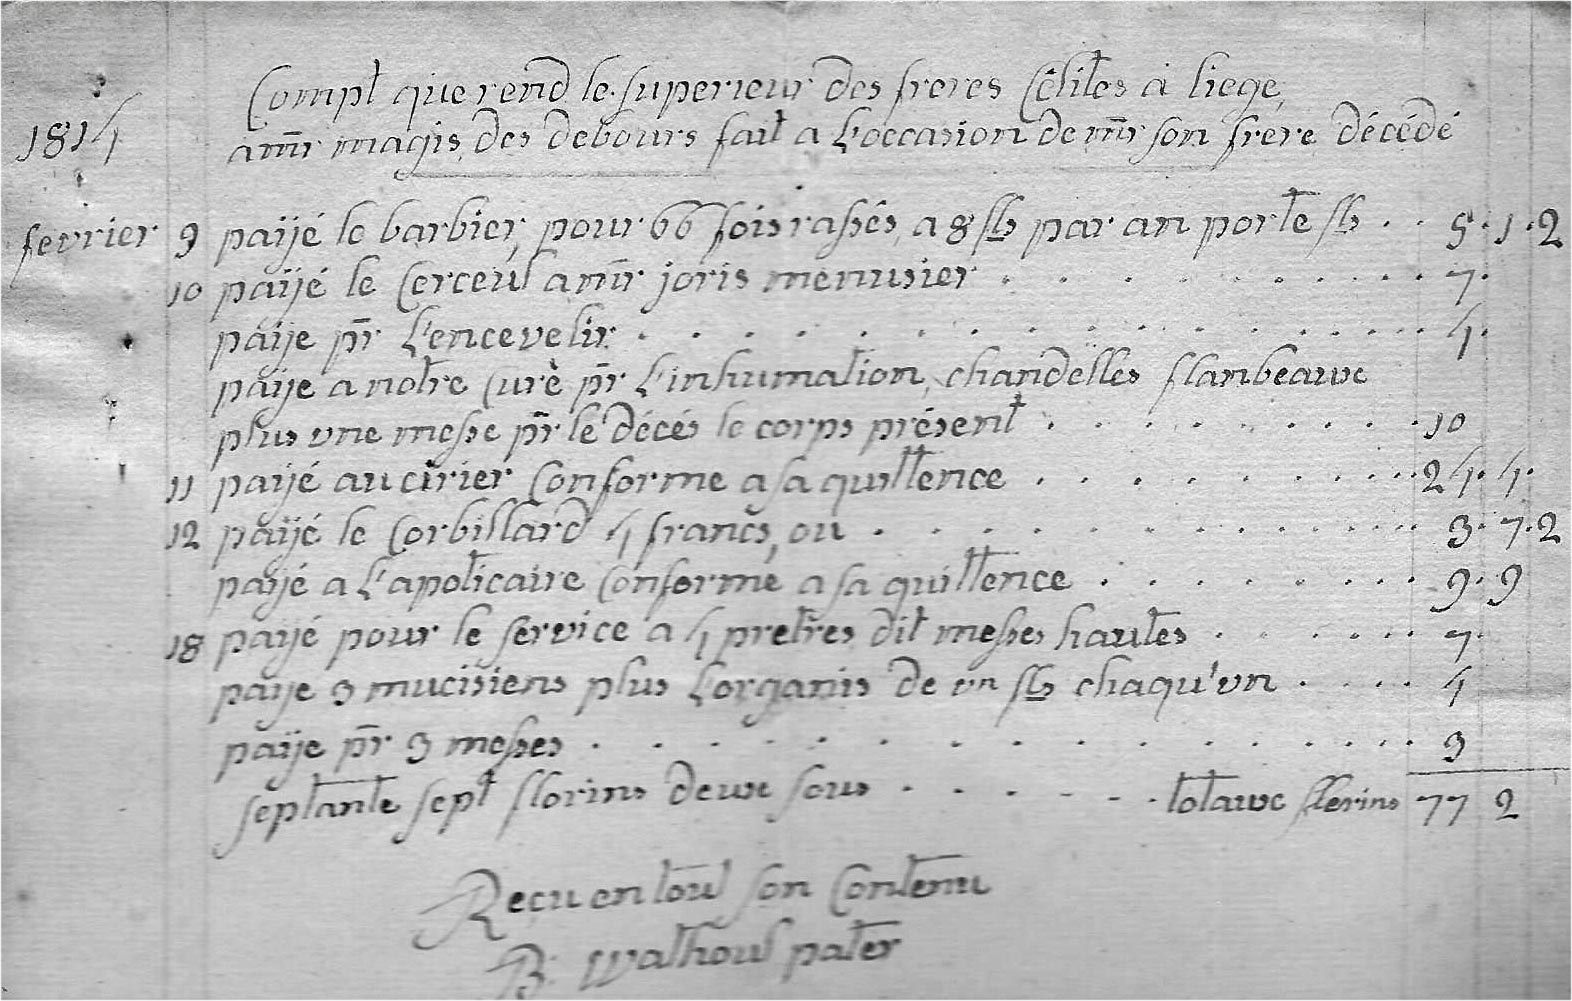 Compt que rend le superieur des freres Célites à liege,
1814 a mr magis des debours fait a L'occasion de mr son frere décédé
fevrier 9 païjé le barbier, pour 66 fois rassés, a 8 fls par an porte fls . . 5 . 1 . 2
10 païjé le Cerceül a mr joris menusier . . . . . . . . 7 .
païje pr L'encevelir . . . . . . . . . . . . 4 .
païje a notre Curè pr L'inhumation, chandelles flanbeaux
plus une messe pr le décés le corps présent . . . . . . . . 10
11 païjé au cirier Conforme a sa quittence . . . . . . . . 24 . 4 .
12 païjé le Corbillard 4 francs, ou . . . . . . . . . . 3 . 7 . 2
païjé a L'apoticaire Conforme a sa quittence . . . . . . . 9 . 9
18 païjé pour le service a 4 pretres dit messes hautes . . . . . . 7 .
païje 3 mucisiens plus L'organis de un fls chaqu'un . . . . 4
païje pr 3 messes . . . . . . . . . . . . . 3
septante sept florins deux sous . . . . . . totaux flerins 77 2
Reçu en tout son Contenu
B: Walthoul pater